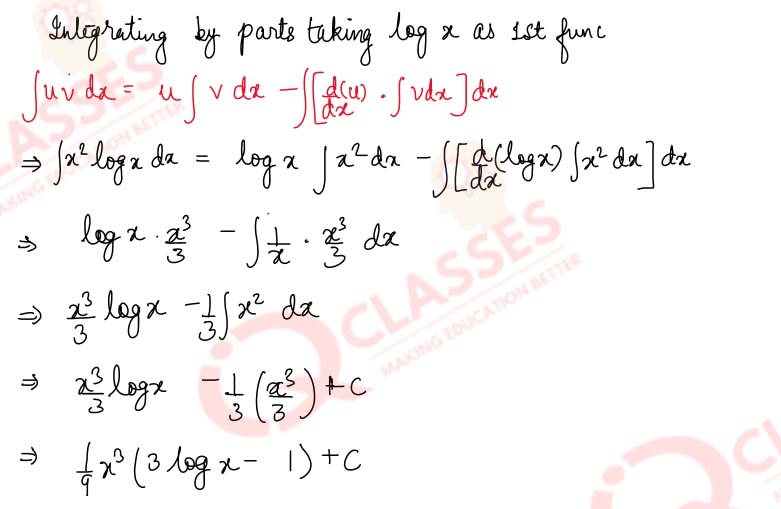 Integrating by parts taking log x as 1st func
∫uv dx = u∫v dx - ∫[d(u)/dx · ∫vdx]dx
⇒ ∫x² log x dx = log x ∫x² dx - ∫[d/dx (log x) ∫x² dx] dx
⇒ log x · x³/3 - ∫ 1/x · x³/3 dx
⇒ x³/3 log x - 1/3 ∫x² dx
⇒ x³/3 log x - 1/3 (x³/3) + C
⇒ 1/9 x³ (3 log x - 1) + C
CLASSES
MAKING EDUCATION BETTER
iQ CLASSES
MAKING EDUCATION BETTER